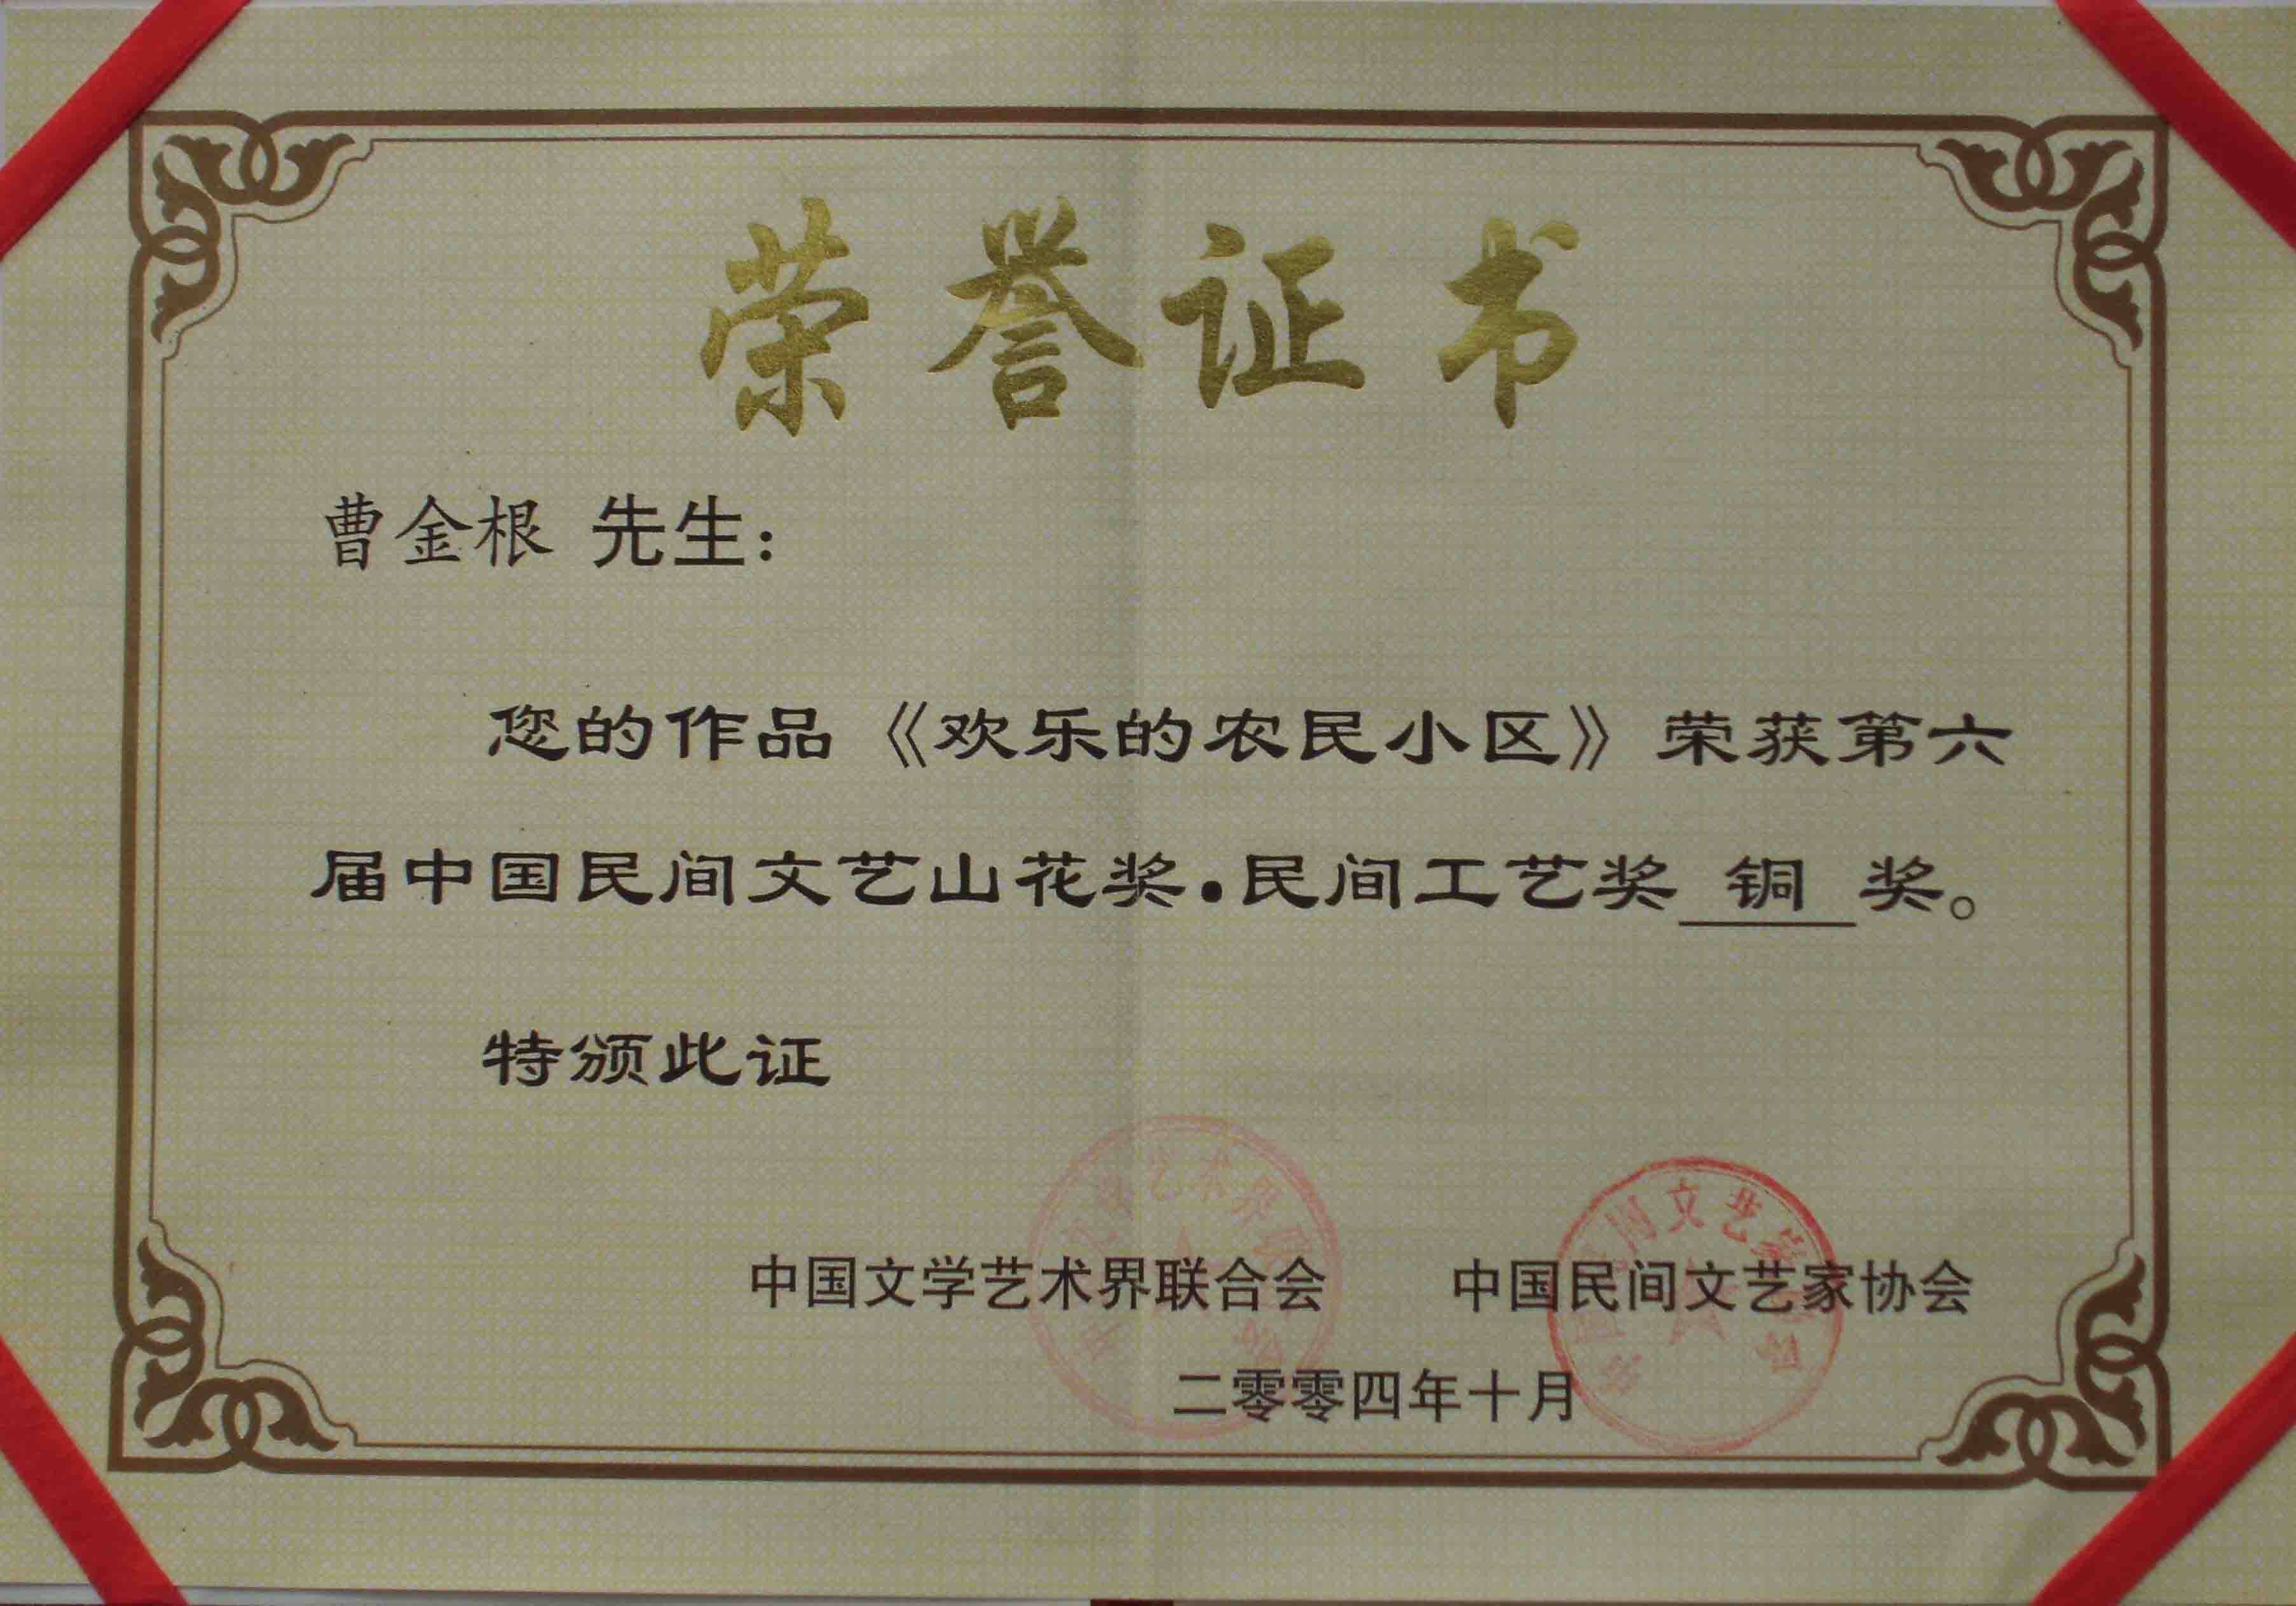 荣誉证书
曹金根 先生：
您的作品《欢乐的农民小区》荣获第六
届中国民间文艺山花奖·民间工艺奖 铜 奖。
特颁此证
中国文学艺术界联合会 中国民间文艺家协会
二零零四年十月